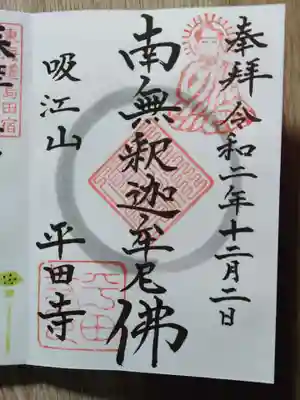 奉拝 令和二年十二月二日
南無釈迦牟尼佛
吸江山 平田寺